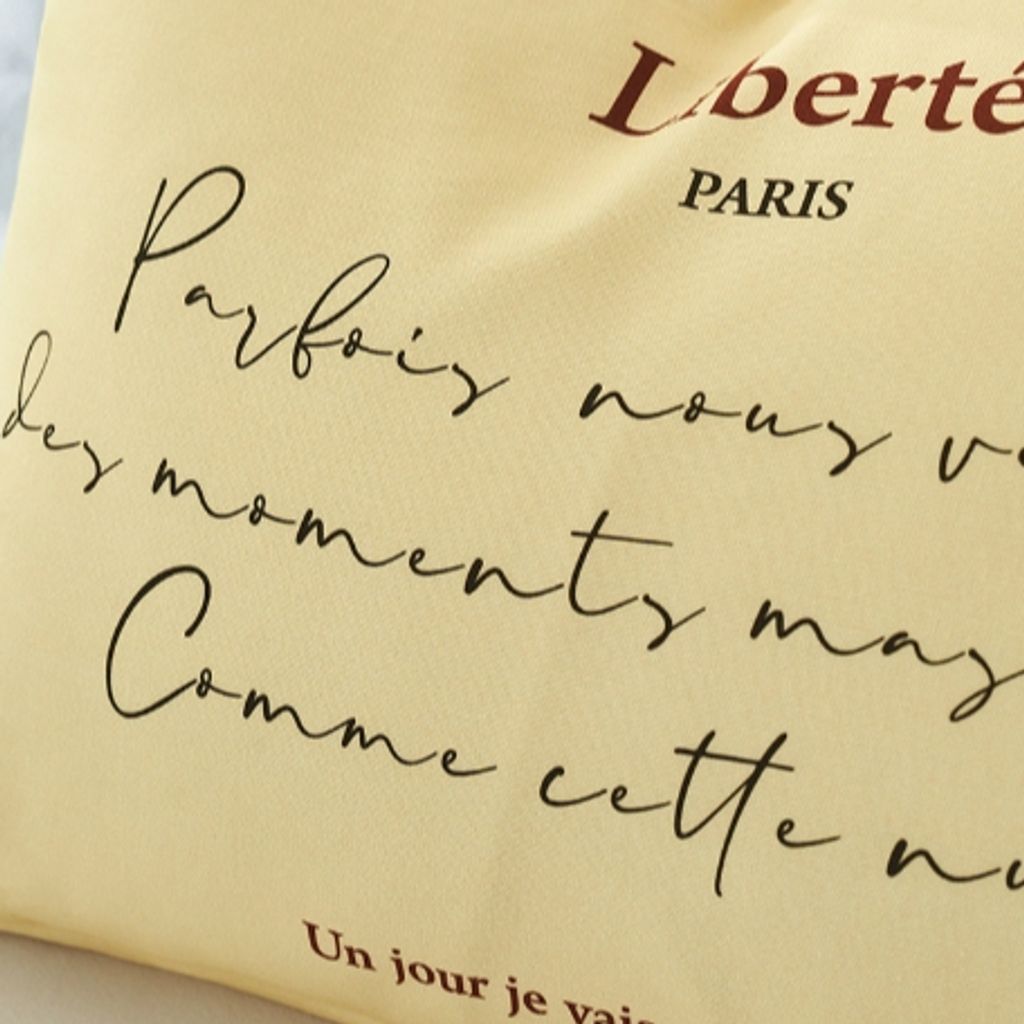 Liberté
PARIS
Parfois nous
des moments
Comme cette
Un jour je vais